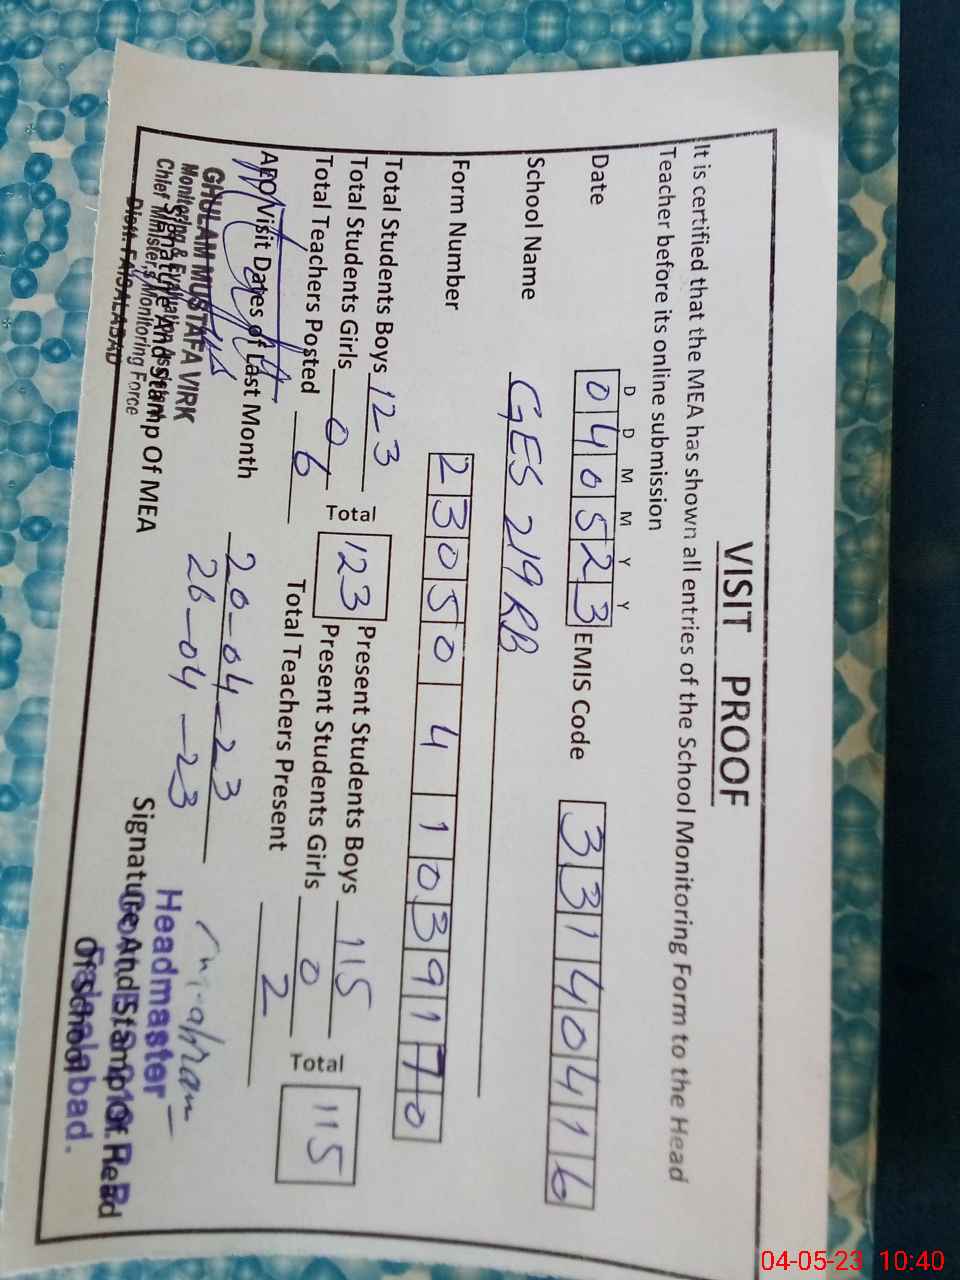 VISIT PROOF
It is certified that the MEA has shown all entries of the School Monitoring Form to the Head
Teacher before its online submission
D D M M Y Y
Date 040523 EMIS Code 33140416
School Name GES 219 RB
Form Number 2305041039170
Total Students Boys 123 Total 123 Present Students Boys 115 Total 115
Total Students Girls 0 Present Students Girls 0
Total Teachers Posted 6 Total Teachers Present 2
AEO Visit Dates of Last Month 20-04-23
26-04-23
GHULAM MUSTAFA VIRK
Monitoring & Evaluation Assistant
Chief Minister's Monitoring Force
Distt. FAISALABAD
Signature And Stamp Of MEA
Headmaster
Signature And Stamp Of Head
Of School
Faisalabad.
04-05-23 10:40